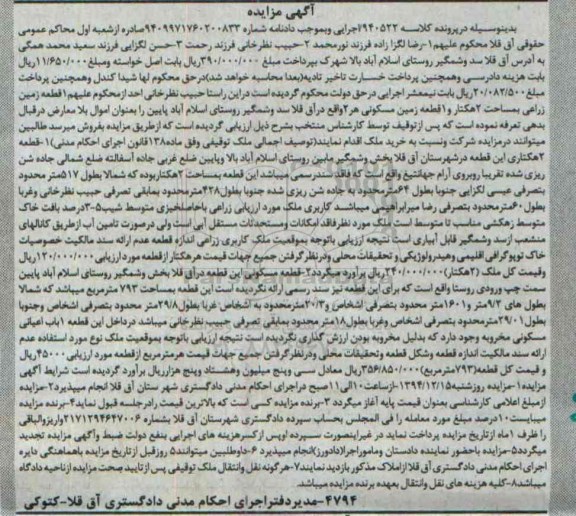 آگهی مزایده
بدینوسیله درپرونده کلاسه ۹۴۰۵۲۲اجرایی وبموجب دادنامه شماره ۹۴۰۹۹۷۱۷۶۰۲۰۰۸۳۳صادره ازشعبه اول محاکم عمومی
حقوقی آق قلا محکوم علیهم۱-رضا لگزا زاده فرزند نورمحمد ۲-حبیب نظرخانی فرزند رحمت ۳-حسن لگزایی فرزند سعید محمد همگی
به آدرس آق قلا سد وشمگیر روستای اسلام آباد بالا شهرک بپرداخت مبلغ ۳۹۰/۰۰۰/۰۰۰ریال بابت اصل خواسته ومبلغ۱۱/۶۵۰/۰۰۰ریال
بابت هزینه دادرسی وهمچنین پرداخت خسارت تاخیر تادیه(بعدا محاسبه خواهد شد)درحق محکوم لها شیدا کندل وهمچنین پرداخت
مبلغ ۲۰/۰۸۲/۵۰۰ریال بابت نیمعشر اجرایی درحق دولت محکوم گردیده است دراین راستا حبیب نظرخانی احد ازمحکوم علیهم۱قطعه زمین
زراعی بمساحت ۲هکتار و۱قطعه زمین مسکونی هر۲واقع درآق قلا سد وشمگیر روستای اسلام آباد پایین را بعنوان اموال بلا معارض درقبال
بدهی تعرفه نموده است که پس ازتوقیف توسط کارشناس منتخب بشرح ذیل ارزیابی گردیده است که ازطریق مزایده بفروش میرسد طالبین
میتوانند درمزایده شرکت ونسبت به خرید ملک اقدام نمایند(توصیف اجمالی ملک توقیفی وفق ماده۱۳۸قانون اجرای احکام مدنی)۱-قطعه
۲هکتاری این قطعه درشهرستان آق قلا بخش وشمگیر مابین روستای اسلام آباد بالا وپایین ضلع غربی جاده آسفالته ضلع شمالی جاده شن
ریزی شده تقریبا روبروی آرام جهانتیغ واقع است که فاقد سندرسمی میباشد این قطعه بمساحت ۲هکتاربوده که شمالا بطول ۵۱۷متر محدود
بتصرفی عیسی لگزایی جنوبا بطول ۶۴مترمحدود به جاده شن ریزی شده جنوبا بطول۴۲۸مترمحدود بمابقی تصرفی حبیب نظرخانی وغربا
بطول ۶۰مترمحدود بتصرفی رضا میرابراهیمی میباشد کاربری ملک مورد ارزیابی زراعی باحاصلخیزی متوسط شیب۵-۳درصد بافت خاک
متوسط زهکشی مناسب تا متوسط است ملک مورد نظرفاقد امکانات ومستحدثات مستقل آبی است ولی درصورت تامین آب ازطریق کانالهای
منشعب ازسد وشمگیر قابل آبیاری است نتیجه ارزیابی باتوجه بموقعیت ملک کاربری زراعی اندازه قطعه عدم ارائه سند مالکیت خصوصیات
خاک توپوگرافی اقلیمی وهیدرولوژیکی و تحقیقات محلی ودرنظرگرفتن جمیع جهات قیمت هرهکتار ازقطعه مورد ارزیابی ۱۲۰/۰۰۰/۰۰۰ریال
وقیمت کل ملک (۲هکتار)۲۴۰/۰۰۰/۰۰۰ریال برآورد میگردد۲-قطعه مسکونی این قطعه درآق قلا بخش وشمگیر روستای اسلام آباد پایین
سمت چپ ورودی روستا واقع است که برای این قطعه نیز سند رسمی ارائه نگردیده است این قطعه بمساحت ۷۹۳ مترمربع میباشد که شمالا
بطول های ۹/۲متر و۱۶۰۱متر محدود بتصرفی اشخاص و۲۰/۳مترمحدود به اشخاص غربا بطول۲۹/۸متر محدود بتصرفی اشخاص وجنوبا
بطول۲۹/۰۱مترمحدود بتصرفی اشخاص وغربا بطول۱۸مترمحدود بمابقی تصرفی حبیب نظرخانی میباشد درداخل این قطعه ۱باب اعیانی
مسکونی مخروبه وجود دارد که بدلیل مخروبه بودن ارزش گذاری نگردیده است نتیجه ارزیابی باتوجه بموقعیت ملک نوع مورد استفاده عدم
ارائه سند مالکیت اندازه قطعه وشکل قطعه وتحقیقات محلی ودرنظرگرفتن جمیع جهات قیمت هرمترمربع ازقطعه مورد ارزیابی ۴۵۰۰۰ریال
و قیمت کل قطعه(۷۹۳مترمربع)۳۵۶/۸۵۰/۰۰۰ریال معادل سی وپنج میلیون وهشتاد وپنج هزارریال برآورد گردیده است شرایط آگهی
مزایده۱-مزایده روزشنبه۱۳۹۴/۱۲/۱۵ازساعت۱۰الی۱۱صبح دراجرای احکام مدنی دادگستری شهرستان آق قلا انجام میپذیرد۲-مزایده
ازمبلغ اعلامی کارشناسی بعنوان قیمت پایه آغاز میگردد ۳-برنده مزایده کسی است که بالاترین قیمت رادرجلسه قبول نماید۴-برنده مزایده
میبایست۱۰درصد مبلغ مورد معامله را فی المجلس بحساب سپرده دادگستری شهرستان آق قلا بشماره ۲۱۷۱۲۹۴۶۴۷۰۰۶واریزوالباقی
را ظرف ۱ماه ازتاریخ مزایده پرداخت نماید در غیراینصورت سپرده اوپس ازکسرهزینه های اجرایی بنفع دولت ضبط وآگهی مزایده تجدید
میگردد۵-مزایده باحضور نماینده دادستان وماموراجرا(دادورز)انجام میپذیرد ۶-داوطلبین میتوانند۵ روزقبل ازتاریخ مزایده باهماهنگی دایره
اجرای احکام مدنی دادگستری آق قلا ازاملاک مذکور بازدید نمایند۷-هرگونه نقل وانتقال ملک توقیفی پس ازتایید صحت مزایده ازناحیه دادگاه
میباشد۸-کلیه هزینه های نقل وانتقال بعهده برنده مزایده میباشد.
۴۷۹۴-مدیردفتراجرای احکام مدنی دادگستری آق قلا-کتوکی